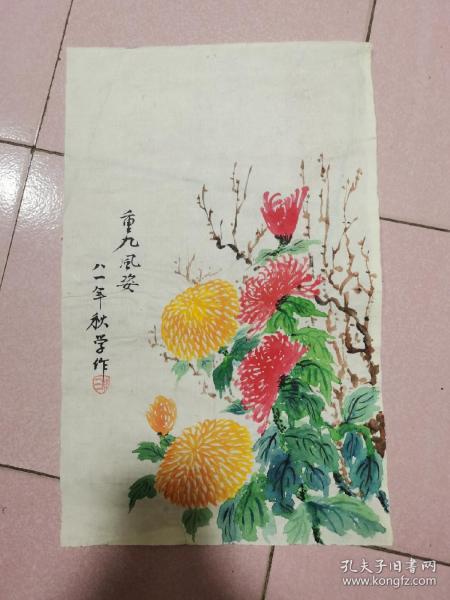 重九風姿
八一年秋学作
孔夫子旧书网
www.kongfz.com